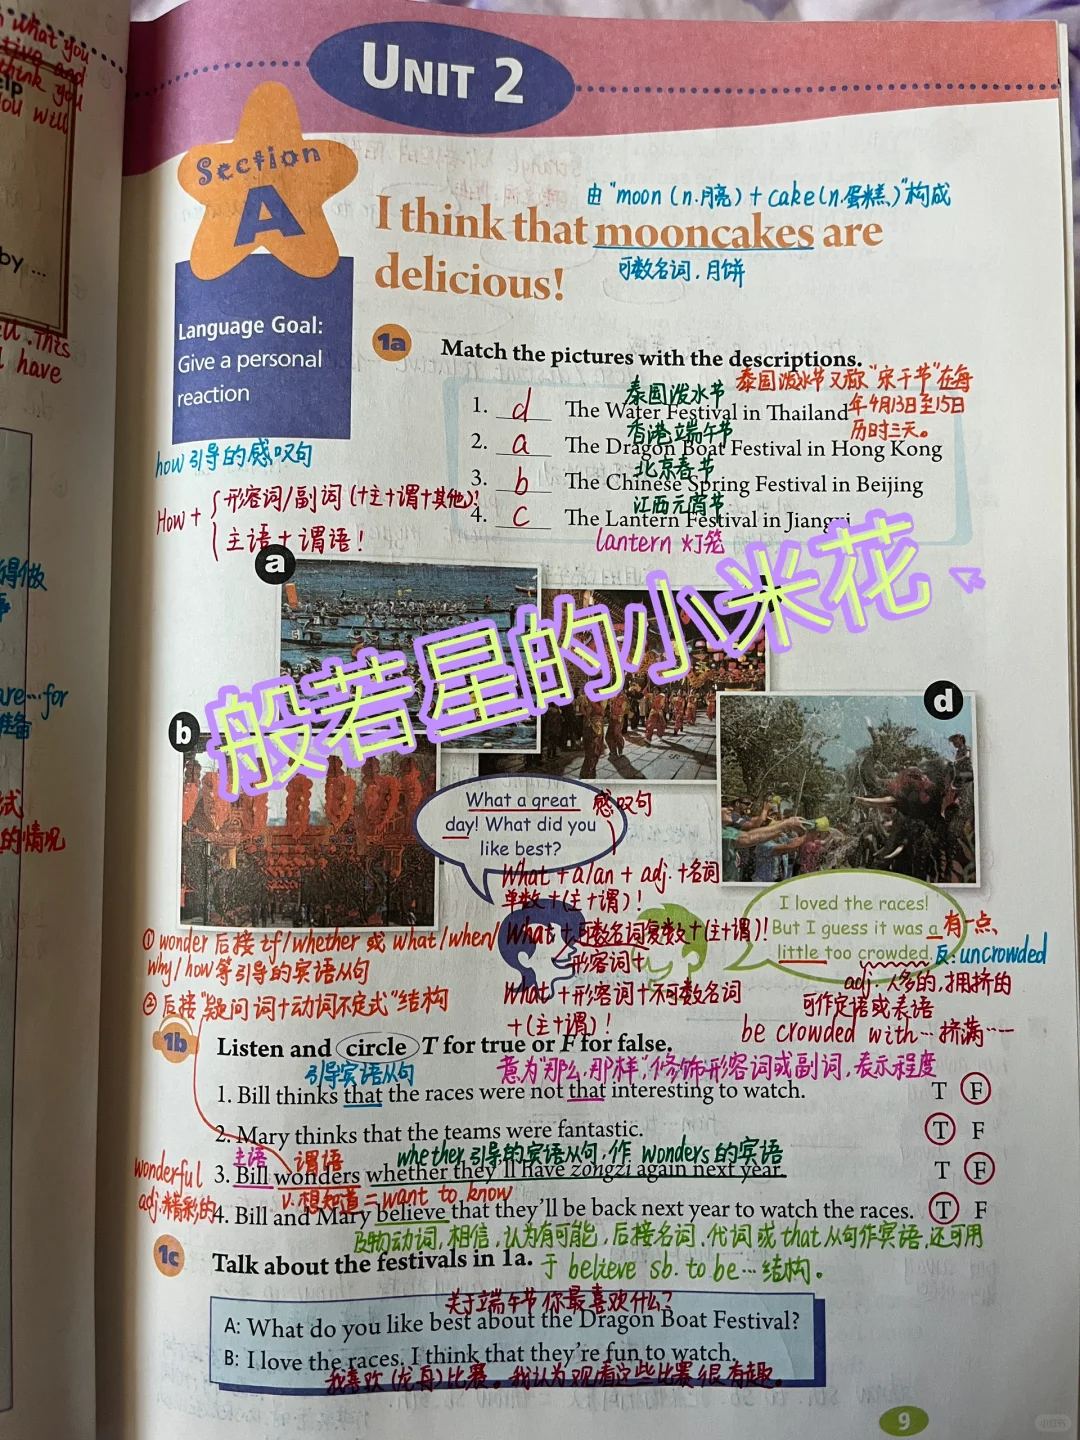 UNIT 2
Section
A
由“moon (n.月亮)+cake(n.蛋糕)”构成
I think that mooncakes are
delicious!
可数名词.月饼
Language Goal:
Give a personal
reaction
1a
Match the pictures with the descriptions.
泰国泼水节
泰国泼水节又称“宋干节”在每
年4月13日至15日
历时三天。
1. d The Water Festival in Thailand
香港端午节
2. a The Dragon Boat Festival in Hong Kong
北京春节
3. b The Chinese Spring Festival in Beijing
江西元宵节
4. c The Lantern Festival in Jiangxi
lantern 灯笼
how引导的感叹句
How + { 形容词/副词 (+主+谓+其他)!
主语+谓语!
a
般若星的小米花
b
d
What a great
day! What did you
like best?
感叹句
What +a/an + adj. +名词
单数+(主+谓)!
What + 可数名词复数+(主+谓)!
形容词+
What +形容词+不可数名词
+(主+谓)!
I loved the races!
But I guess it was a
little too crowded.
有一点、
反: uncrowded
adj. 人多的,拥挤的
可作定语或表语
be crowded with… 挤满……
① wonder 后接 if/whether 或 what/when/
why/how等引导的宾语从句
② 后接“疑问词+动词不定式”结构
1b
Listen and circle T for true or F for false.
引导宾语从句
意为“那么,那样”,修饰形容词或副词,表示程度
1. Bill thinks that the races were not that interesting to watch. T F
2. Mary thinks that the teams were fantastic. T F
主语 谓语 whether引导的宾语从句,作 wonders的宾语
3. Bill wonders whether they'll have zongzi again next year. T F
v.想知道=want to know
wonderful
adj.精彩的
4. Bill and Mary believe that they'll be back next year to watch the races. T F
及物动词,相信,认为有可能,后接名词,代词或that从句作宾语,还可用
于 believe sb. to be…结构。
1c
Talk about the festivals in 1a.
关于端午节你最喜欢什么?
A: What do you like best about the Dragon Boat Festival?
B: I love the races. I think that they're fun to watch.
我喜欢(龙舟)比赛。我认为观看这些比赛很有趣。
9
小红书